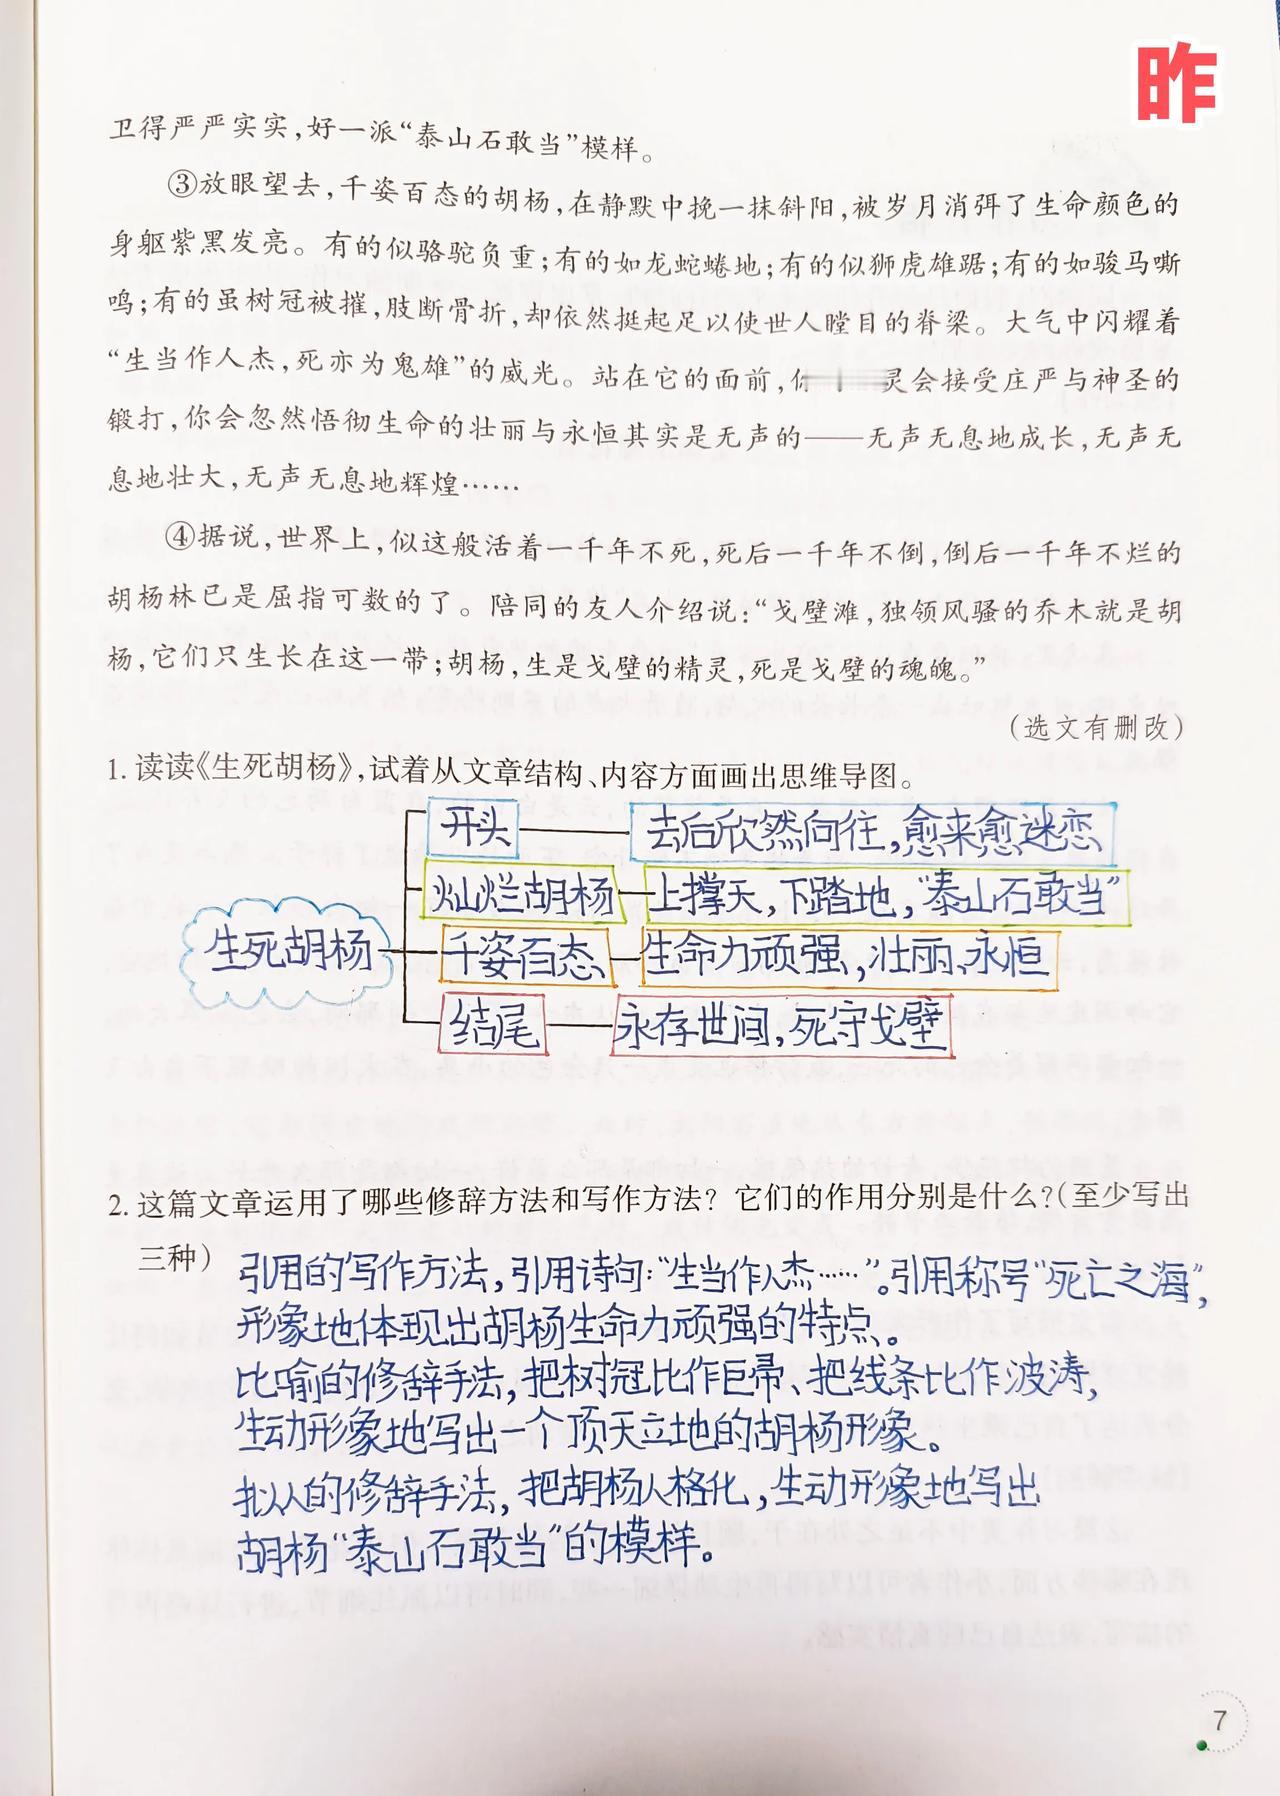 昨
卫得严严实实，好一派“泰山石敢当”模样。
③放眼望去，千姿百态的胡杨，在静默中挽一抹斜阳，被岁月消弭了生命颜色的
身躯紫黑发亮。有的似骆驼负重；有的如龙蛇蜷地；有的似狮虎雄踞；有的如骏马嘶
鸣；有的虽树冠被摧，肢断骨折，却依然挺起足以使世人瞠目的脊梁。大气中闪耀着
“生当作人杰，死亦为鬼雄”的威光。站在它的面前，灵会接受庄严与神圣的
锻打，你会忽然悟彻生命的壮丽与永恒其实是无声的——无声无息地成长，无声无
息地壮大，无声无息地辉煌……
④据说，世界上，似这般活着一千年不死，死后一千年不倒，倒后一千年不烂的
胡杨林已是屈指可数的了。陪同的友人介绍说：“戈壁滩，独领风骚的乔木就是胡
杨，它们只生长在这一带；胡杨，生是戈壁的精灵，死是戈壁的魂魄。”
（选文有删改）
1. 读读《生死胡杨》，试着从文章结构、内容方面画出思维导图。
开头 去后欣然向往，愈来愈迷恋
灿烂胡杨 上撑天，下踏地，“泰山石敢当”
生死胡杨
千姿百态 生命力顽强，壮丽、永恒
结尾 永存世间，死守戈壁
2. 这篇文章运用了哪些修辞方法和写作方法？它们的作用分别是什么？（至少写出
三种）
引用的写作方法，引用诗句：“生当作人杰……”。引用称号“死亡之海”，
形象地体现出胡杨生命力顽强的特点。
比喻的修辞手法，把树冠比作巨帚、把线条比作波涛，
生动形象地写出一个顶天立地的胡杨形象。
拟人的修辞手法，把胡杨人格化，生动形象地写出
胡杨“泰山石敢当”的模样。
7